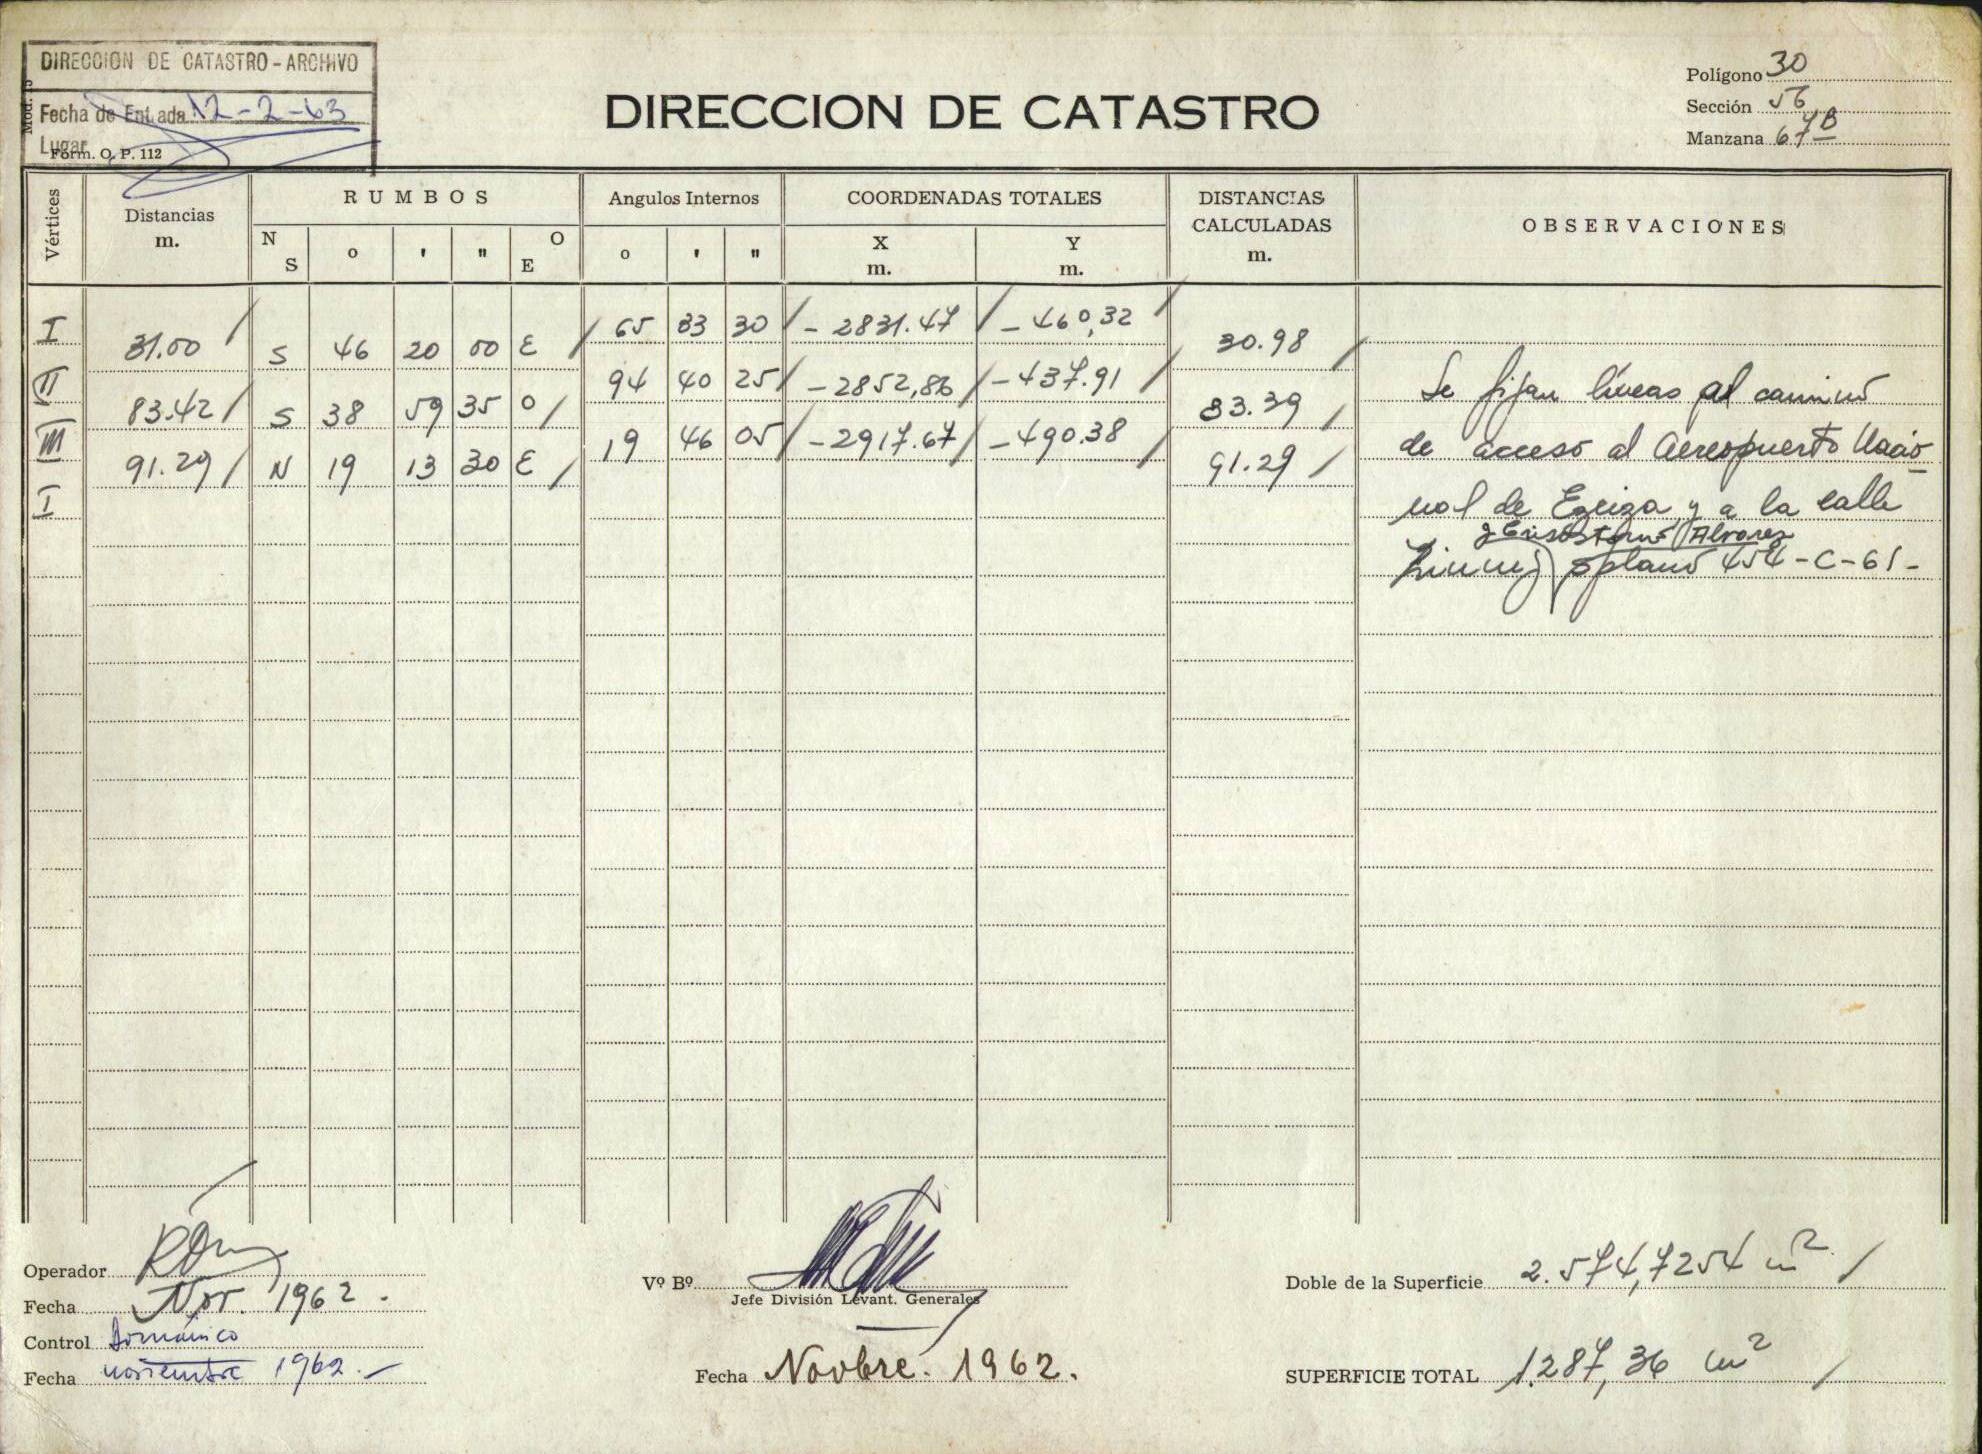 DIRECCION DE CATASTRO - ARCHIVO
Fecha de Entrada 12-2-63
Lugar
Mod. 75
Form. O. P. 112
DIRECCION DE CATASTRO
Polígono 30
Sección 56
Manzana 67B
Vértices
Distancias
m.
RUMBOS
N
S
o
'
"
O
E
Angulos Internos
o
'
"
COORDENADAS TOTALES
X
m.
Y
m.
DISTANCIAS
CALCULADAS
m.
OBSERVACIONES
I 65 33 30 - 2831.47 - 460,32
31.00 S 46 20 00 E 30.98
II 94 40 25 - 2852,86 - 437.91
83.42 S 38 59 35 O 83.39
III 19 46 05 - 2917.67 - 490.38
91.29 N 19 13 30 E 91.29
I
Se fijan líneas al camino
de acceso al Aereopuerto Nacio
nal de Ezeiza y a la calle
J Crisostomo Alvarez
Zinny) s/plano 454-C-61-
Operador
Fecha Nov. 1962.
Control Domínico
Fecha noviembre 1962.-
Vº Bº
Jefe División Levant. Generales
Fecha Novbre. 1962.
Doble de la Superficie 2.574,7254 m2
SUPERFICIE TOTAL 1.287,36 m2